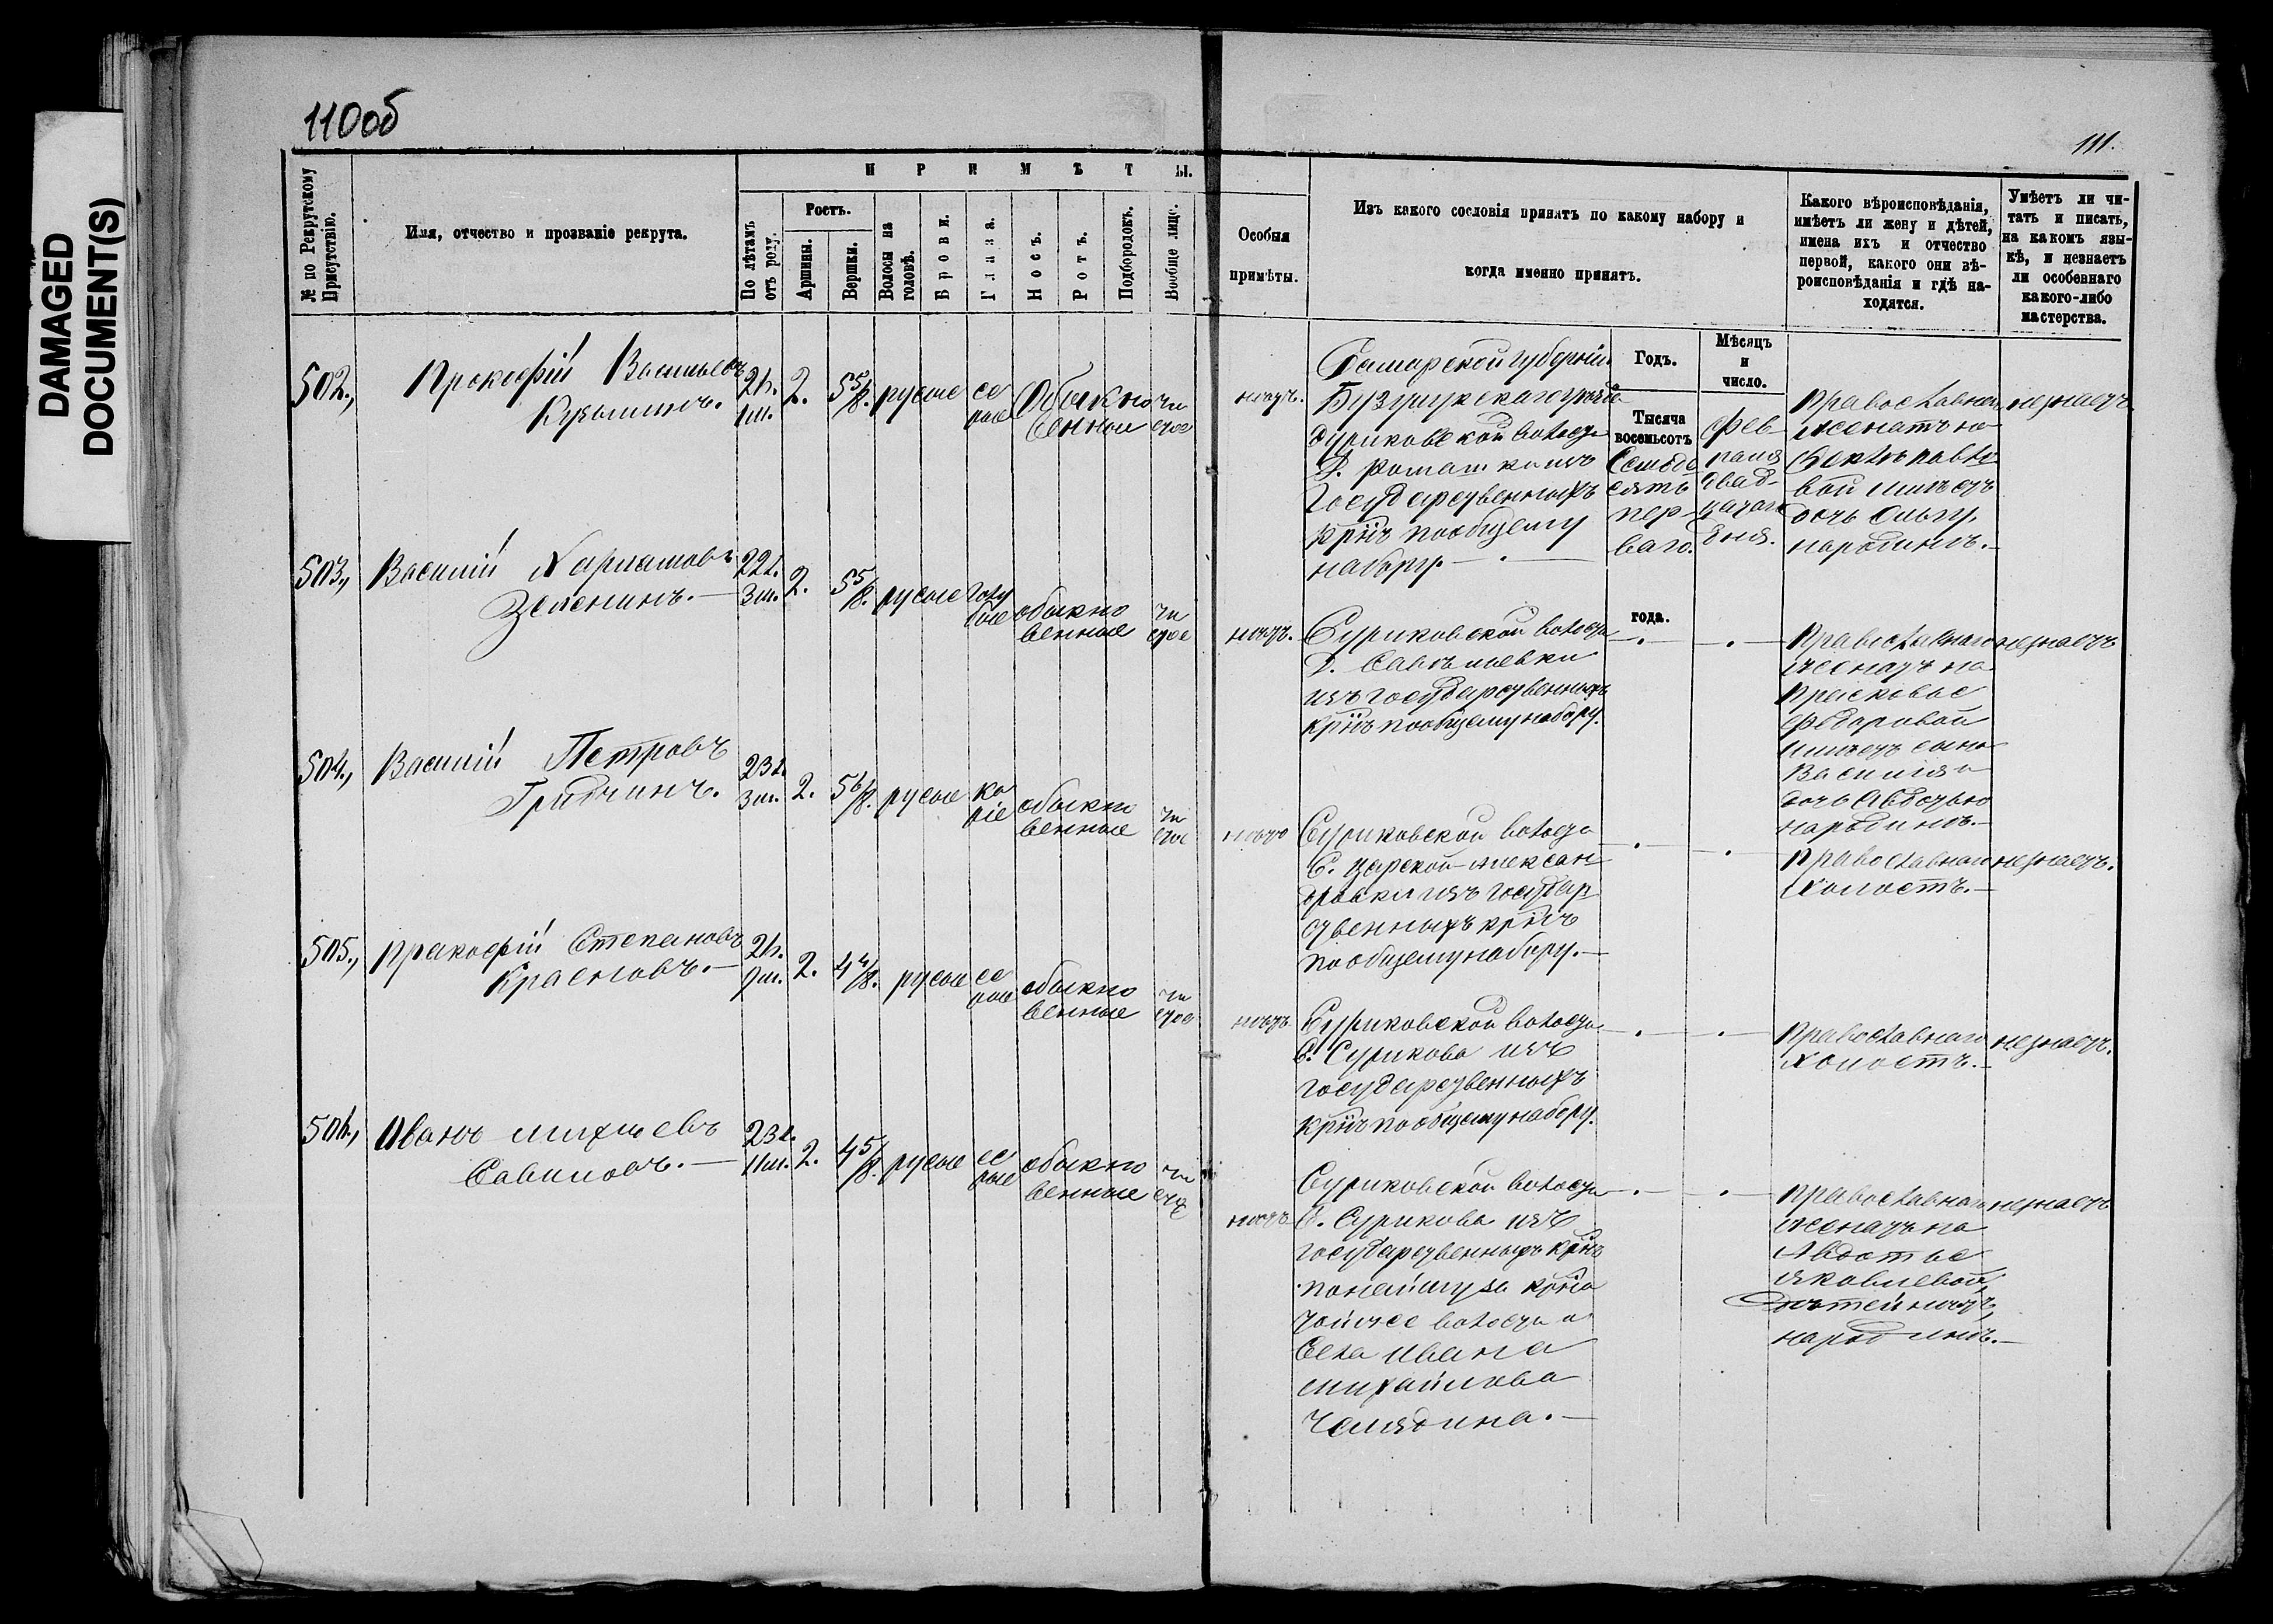 DAMAGED
DOCUMENT(S)
110об
111.
№ по Рекрутскому
Присутствію.
Имя, отчество и прозваніе рекрута.
П Р И М Ѣ Т Ы.
По лѣтамъ
отъ роду.
Ростъ.
Аршины.
Вершки.
Волосы на
головѣ.
Брови.
Глаза.
Носъ.
Ротъ.
Подбородокъ.
Вообще лице.
Особыя
примѣты.
Изъ какого сословія принятъ по какому набору и
когда именно принятъ.
Какого вѣроисповѣданія,
имѣетъ ли жену и дѣтей,
имена ихъ и отчество
первой, какого они вѣ-
роисповѣданія и гдѣ на-
ходятся.
Умѣетъ ли чи-
тать и писать,
на какомъ язы-
кѣ, и незнаетъ
ли особеннаго
какого-либо
мастерства.
Годъ.
Мѣсяцъ
и
число.
502.,
Прокофій Васильевъ
Кузьминъ.
21л.
2.
5 5/8.
русые
се
рые
Обыкно
венные
чи
стое
нѣтъ.
Самарской губерніи
Бузулукскаго уѣзда
Суриковской волости
Д. Ромашки изъ
Государственныхъ
крнъ пообщему
набору.
Тысяча
восемьсотъ
Семьде
сятъ
пер-
ваго.
года.
Фев-
раля
двад-
цатаго
дня.
Православнаго
женатъ на
Ѳектѣ Павло
вой имѣетъ
дочь Ольгу,
народинѣ.
незнаетъ.
503.,
Василій Харламовъ
Зеленинъ.
22л.
3м.
2.
5 5/8.
русые
голу
бые
обыкно
венные
чи
стое
нѣтъ.
Суриковской волости
Д. Савельевки
изъ государственныхъ
крнъ пообщему набору.
Православнаго
женатъ на
Прасковье
Федоровой
имѣетъ сына
Василія и
дочь Авдотью
народинѣ.
незнаетъ
504.,
Василій Петровъ
23л.
3м.
2.
5 6/8.
русые
ка
ріе
обыкно
венные
чи
стое
нѣтъ
Суриковской волости
С. Царской-Алексан-
дровки изъ государ-
ственныхъ крнъ
пообщему набору.
Православнаго
Холостъ.
незнаетъ.
505.,
Прокофій Степановъ
Красновъ.
21л.
9м.
2.
4 4/8.
русые
се
рые
обыкно
венные
чи
стое
нѣтъ
Суриковской волости
С. Сурикова изъ
государственныхъ
крнъ пообщему набору.
Православнаго
Холостъ.
незнаетъ.
506.,
Иванъ Михѣевъ
Савиновъ.
23л.
11м.
2.
4 5/8.
русые
се
рые
обыкно
венные
чи
стое
нѣтъ
Суриковской волости
С. Сурикова изъ
государственныхъ крнъ
понайму за крна
тойже волости и
Села Ивана
Михайлова
Челядина.
Православнаго
женатъ на
Авдотье
Яковлевой,
дѣтей нѣтъ,
народинѣ.
незнаетъ